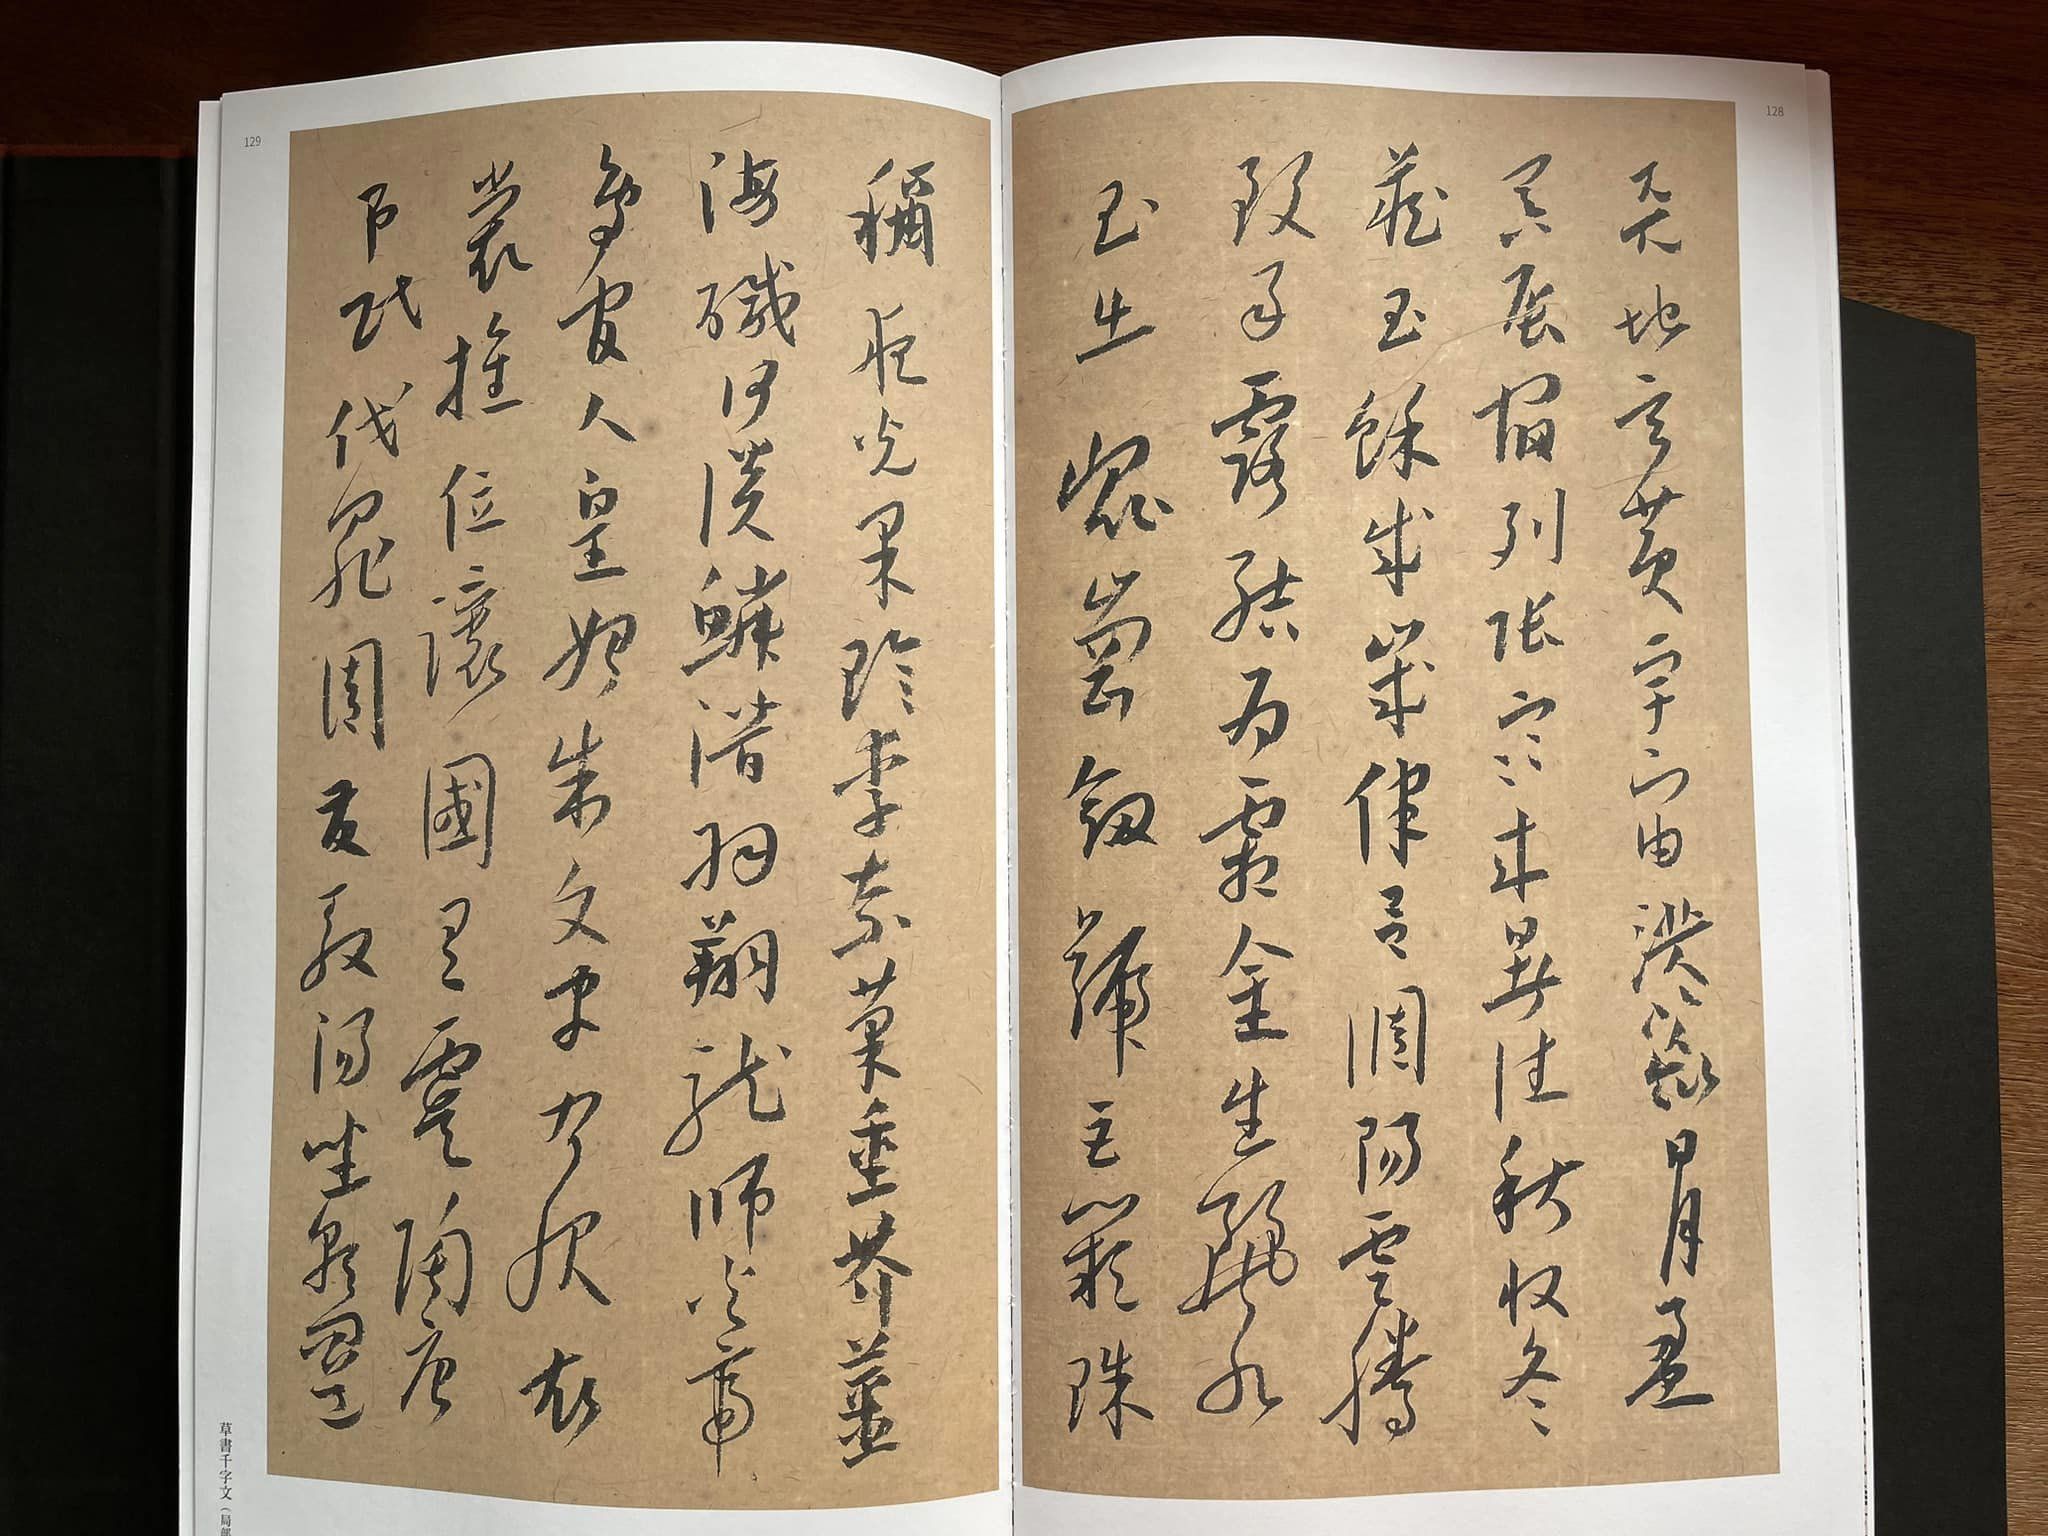 128
天地玄黃宇宙洪荒日月盈
昃辰宿列張寒來暑往秋收冬
藏閏餘成歲律呂調陽雲騰
致雨露結為霜金生麗水
玉出崑崗劍號巨闕珠
129
稱夜光果珍李柰菜重芥薑
海鹹河淡鱗潛羽翔龍師火帝
鳥官人皇始制文字乃服衣
裳推位讓國有虞陶唐
弔民伐罪周發殷湯坐朝問道
草書千字文（局部